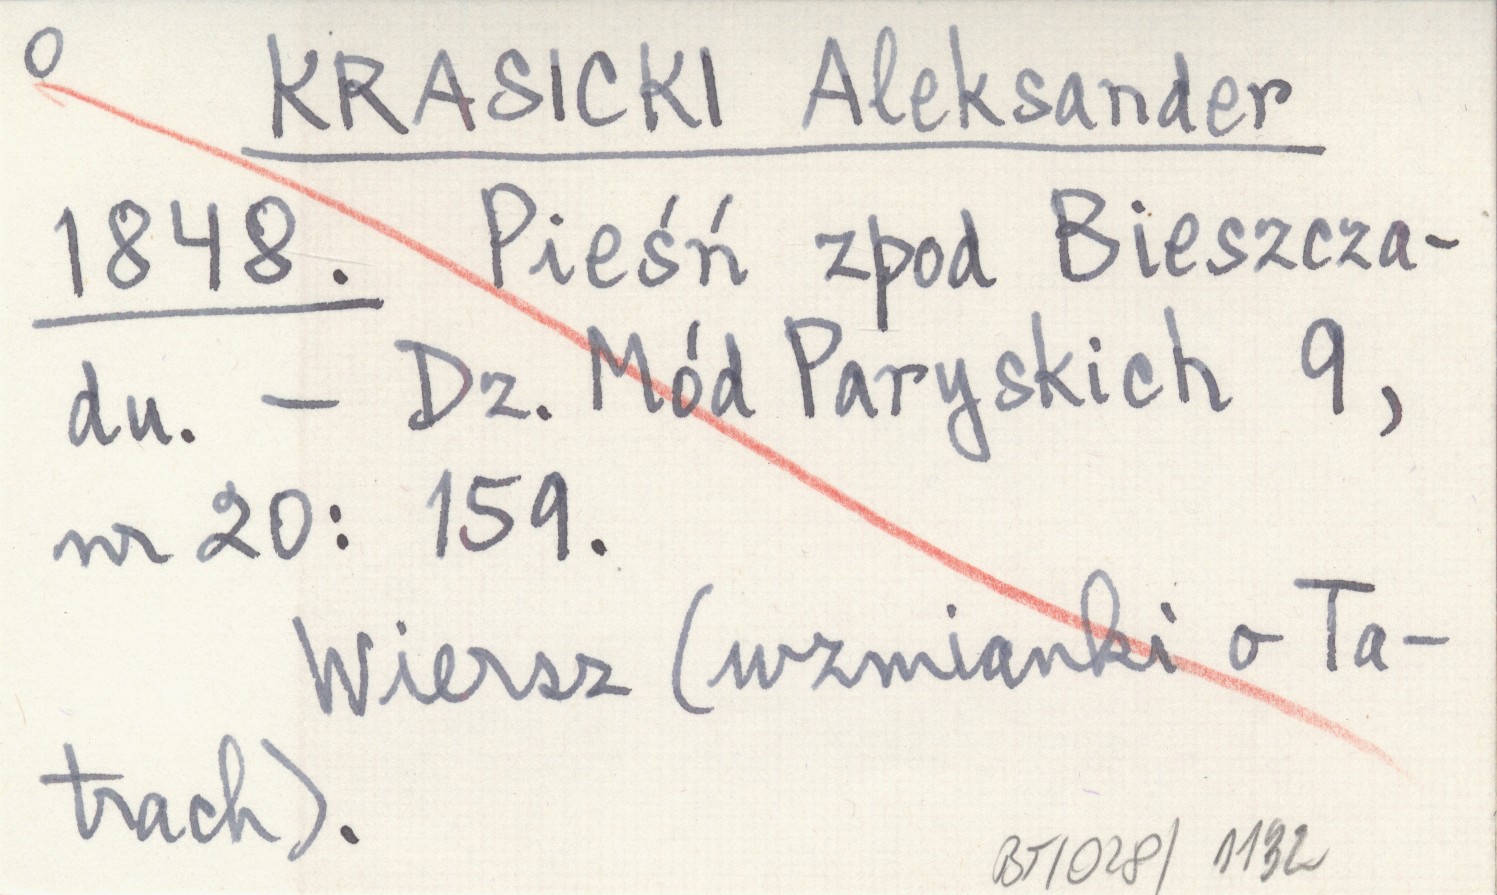 O
KRASICKI Aleksander
1848. Pieśń zpod Bieszcza-
du. – Dz. Mód Paryskich 9,
nr 20: 159.
Wiersz (wzmianki o Ta-
trach).
BT/028/ 1132